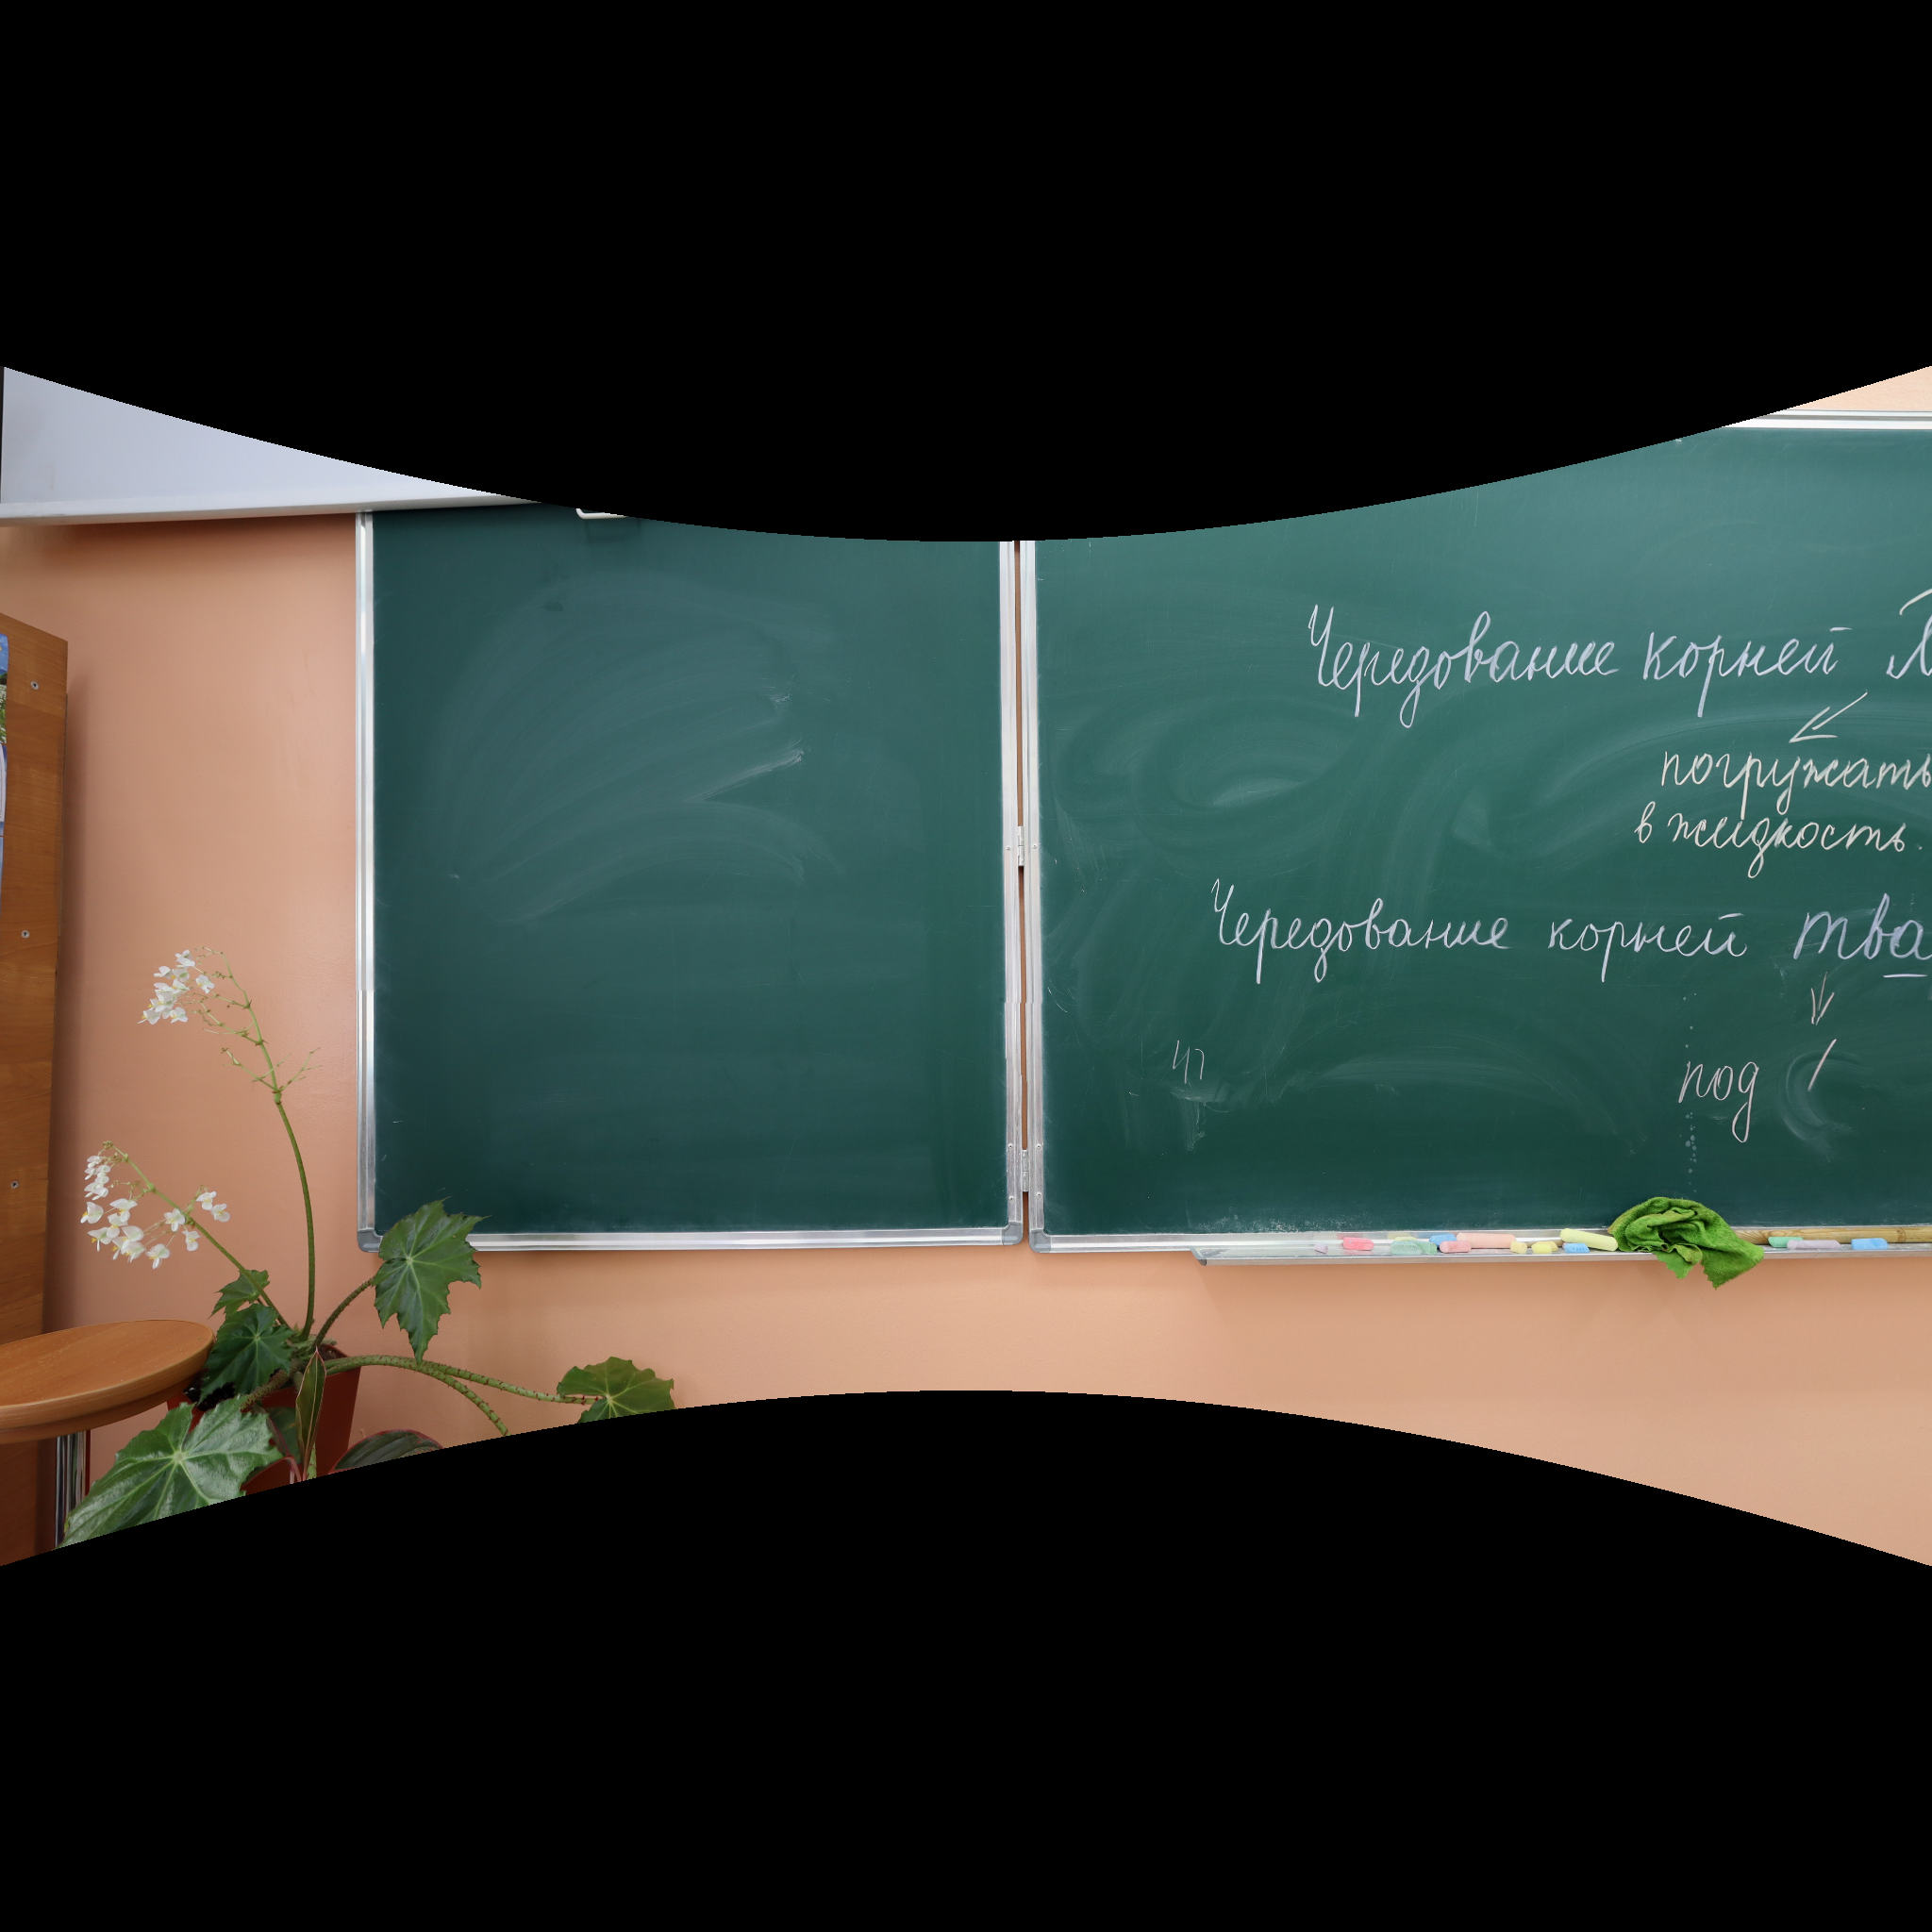 Чередование корней
погружать
в жидкость.
Чередование корней тва
под /